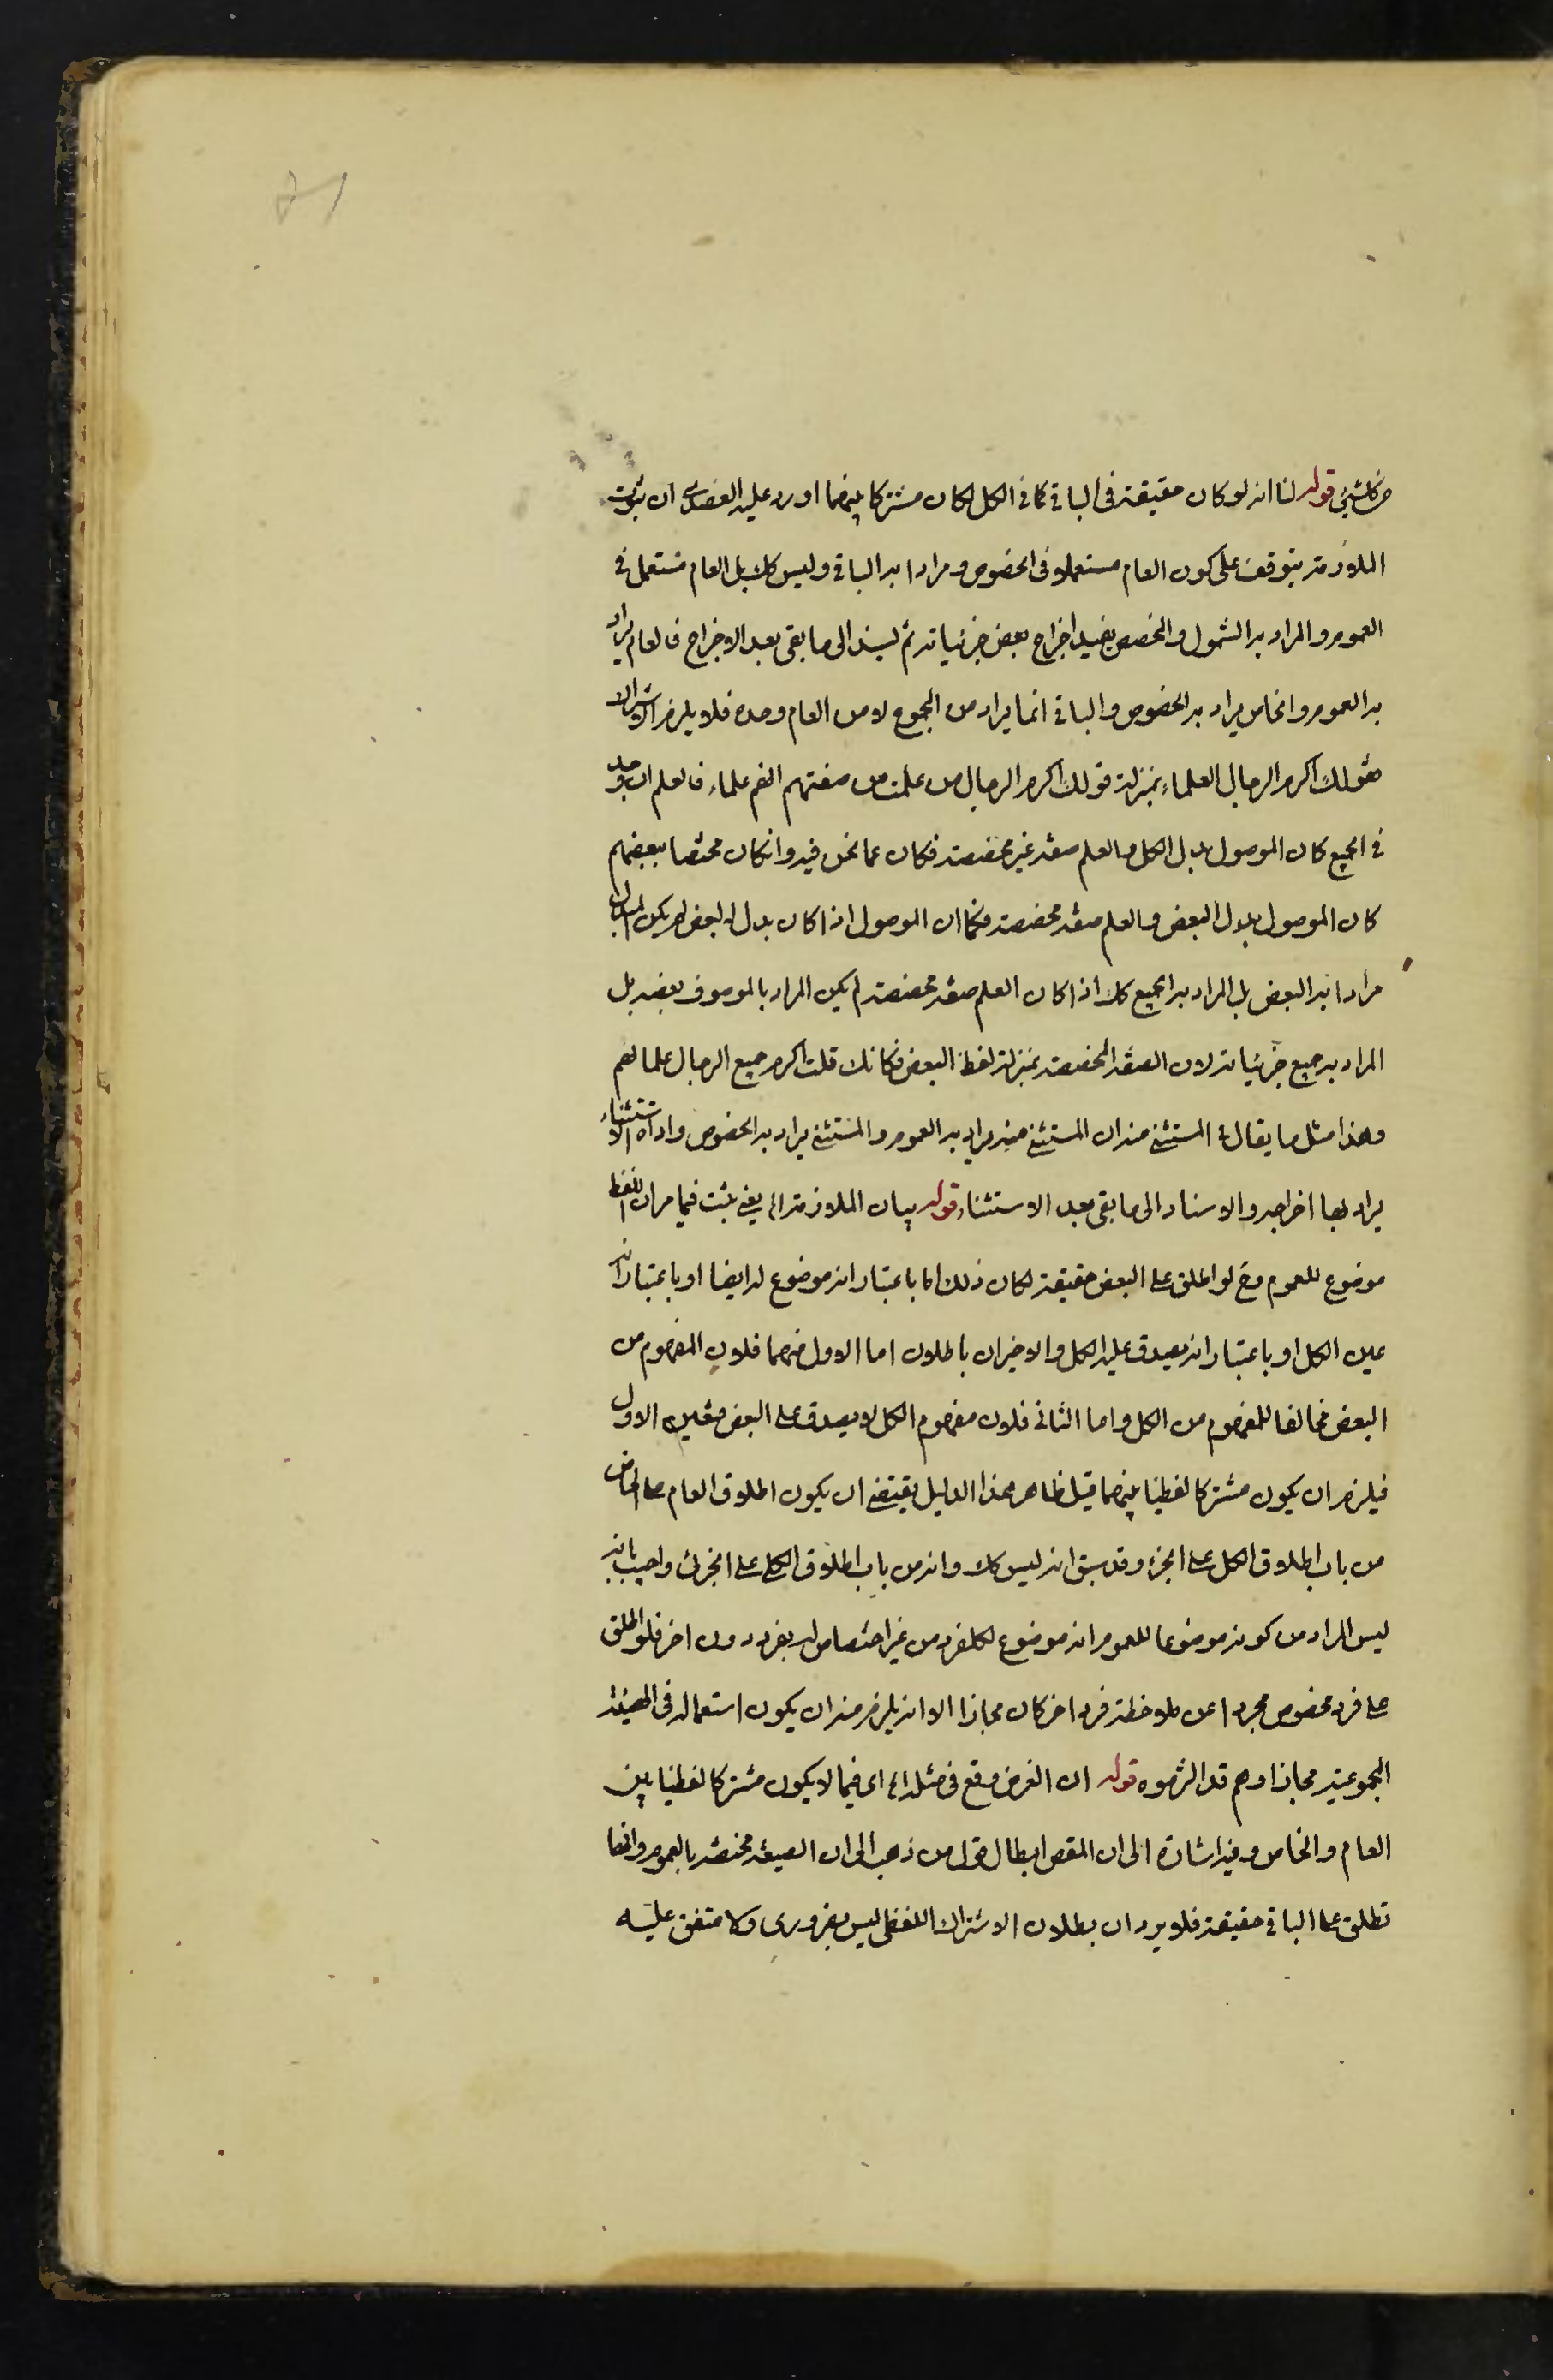 من كل شئ قوله لنا انه لو كان حقيقة فى الباقى كما فى الكل لكان مشتركا بينهما اورد عليه العضدى ان ثبوت
الملازمة يتوقف على كون العام مستعملا فى الخصوص ومرادا به الباقى وليس كك بل العام مستعمل فى
العموم والمراد به الشمول والمخصص يفيد اخراج بعض جزئياته ثم يسند الى ما بقى بعد الاخراج فالعام يراد
به العموم والخاص يراد به الخصوص والباقى انما يراد من المجموع لا من العام وحده فلا يلزم الاشتراك
فقولك اكرم الرجال العلماء بمنزلة قولك اكرم الرجال من علمت من صفتهم انهم علماء فالعلم ان وجد
فى الجميع كان الموصول بدل الكل والعلم صفة غير مخصصة فكان عما نحن فيه وانكان مختصا ببعضهم
كان الموصول بدل البعض والعلم صفة مخصصة فكما ان الموصول اذا كان بدل البعض لم يكن المبدل
مرادا به البعض بل المراد به الجميع كك اذا كان العلم صفة مخصصة لم يكن المراد بالموصوف بعضه بل
المراد به جميع جزئياته لان الصفة المخصصة بمنزلة لفظ البعض فكانك قلت اكرم جميع الرجال علمائهم
وهذا مثل ما يقال فى المستثنى منه ان المستثنى منه يراد به العموم والمستثنى يراد به الخصوص واداة الاستثناء
يراد بها اخراجه والاسناد الى ما بقى بعد الاستثناء قوله بيان الملازمة اه يعنى ثبت فيما مر ان اللفظ
موضوع للعموم وح لو اطلق على البعض حقيقة لكان ذلك اما باعتبار انه موضوع له ايضا او باعتبار انه
عين الكل او باعتبار انه يصدق عليه الكل والاخيران باطلان اما الاول منهما فلان المفهوم من
البعض مخالفا للمفهوم من الكل واما الثانى فلان مفهوم الكل لا يصدق على البعض فتعين الاول
فيلزم ان يكون مشتركا لفظيا بينهما قيل ظاهر هذا الدليل يقتضى ان يكون اطلاق العام على الخاص
من باب اطلاق الكل على الجزء وقد سبق انه ليس كك وانه من باب اطلاق الكلى على الجزئى واجيب بانه
ليس المراد من كونه موضوعا للعموم انه موضوع لكلفرد من غير اختصاص له بفرد دون اخر فلو اطلق
على فرد مخصوص مجردا عن ملاحظة فرد اخر كان مجازا الا انه يلزم منه ان يكون استعماله فى الهيئة
المجموعية مجازا وهم قد التزموه قوله ان الغرض وقع فى مثله اه اى فيما لا يكون مشتركا لفظيا بين
العام والخاص وفيه اشارة الى ان المقص ابطال قول من ذهب الى ان الصيغة مختصة بالعموم وانها
تطلق على الباقى حقيقة فلا يرد ان بطلان الاشتراك اللفظى ليس بضرورى ولا متفق عليه